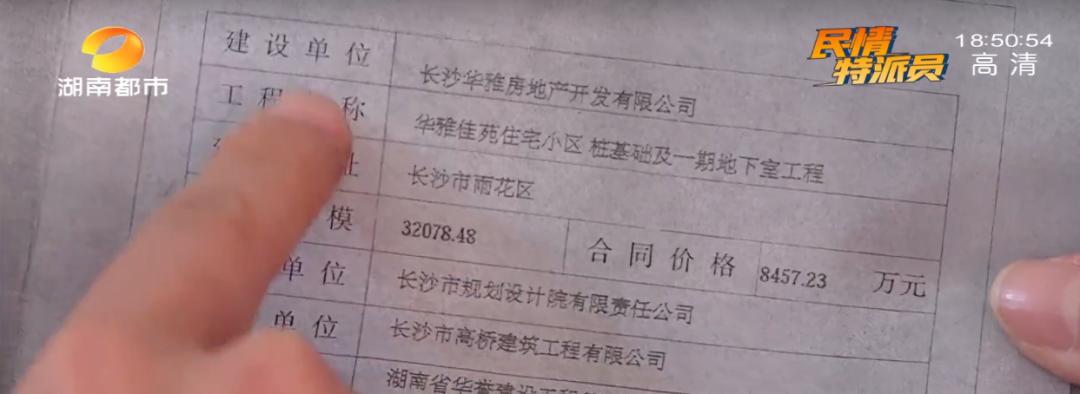 湖南都市
民情
特派员
18:50:54
高清
建设单位
长沙华雅房地产开发有限公司
工程 称
华雅佳苑住宅小区 桩基础及一期地下室工程
址
长沙市雨花区
模
32078.48
合同价格
8457.23 万元
单位
长沙市规划设计院有限责任公司
单位
长沙市高桥建筑工程有限公司
湖南省华誉建设工程